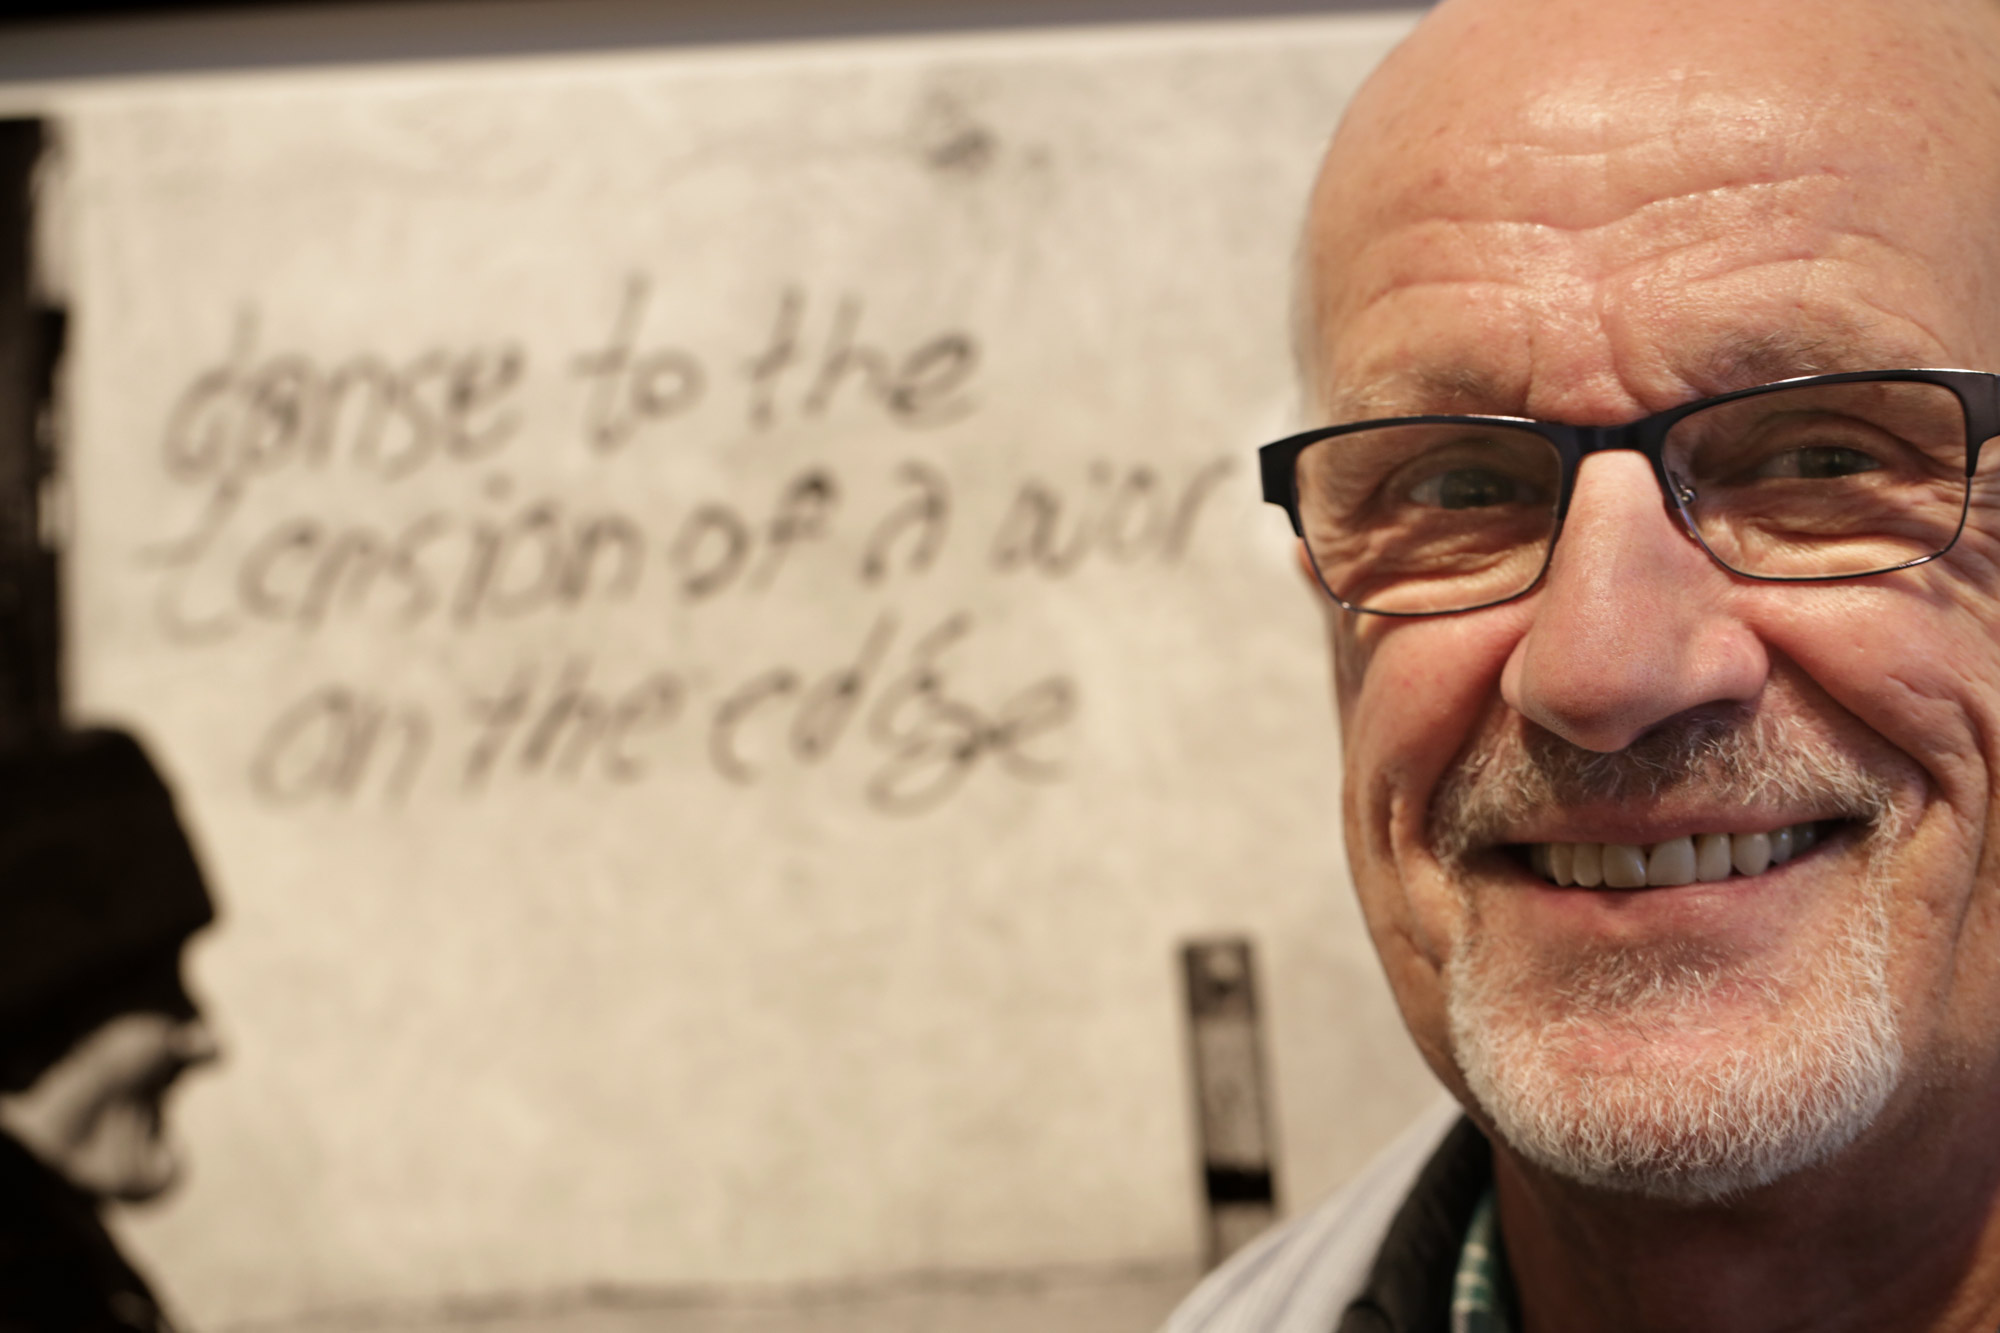 danse to the
tension of a wor
on the edge